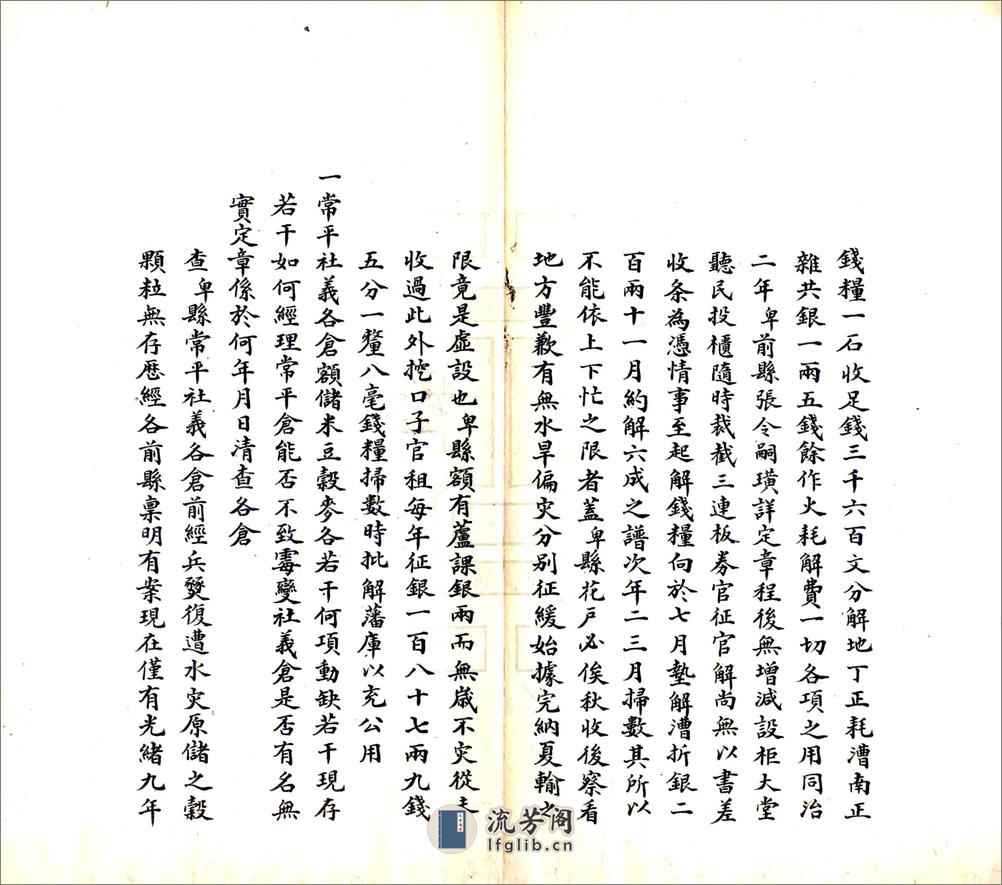 錢糧一石收足錢三千六百文分解地丁正耗漕南正
雜共銀一兩五錢餘作火耗解費一切各項之用同治
二年卑前縣張令嗣璜詳定章程後無增減設柜大堂
聽民投櫃隨時裁截三連板券官征官解尚無以書差
收条為憑情事至起解錢糧向於七月墊解漕折銀二
百兩十一月約解六成之譜次年二三月掃數其所以
不能依上下忙之限者蓋卑縣花戶必俟秋收後察看
地方豐歉有無水旱偏灾分別征緩始據完納夏輸之
限竟是虛設也卑縣額有蘆課銀兩而無歲不灾從未
收過此外挖口子官租每年征銀一百八十七兩九錢
五分一釐八毫錢糧掃數時批解藩庫以充公用
一常平社義各倉額儲米豆穀麥各若干何項動缺若干現存
若干如何經理常平倉能否不致霉變社義倉是否有名無
實定章係於何年月日清查各倉
查卑縣常平社義各倉前經兵燹復遭水灾原儲之穀
顆粒無存歷經各前縣稟明有案現在僅有光緒九年
流芳阁
lfglib.cn